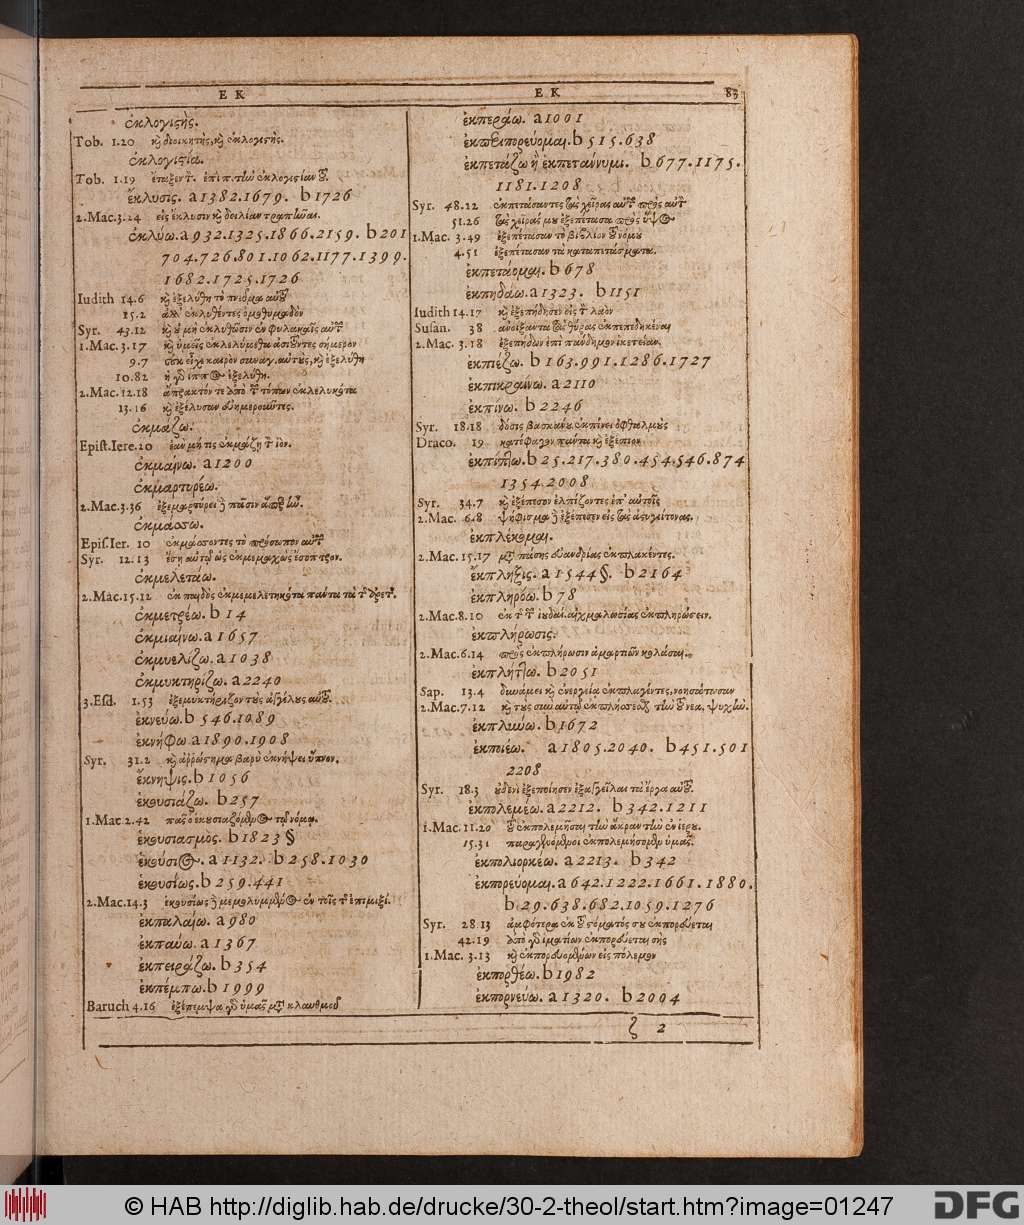 E K
E K 83
ἐκλογιστής.
Tob. 1.20 καὶ διοικητὴς, καὶ ἐκλογιστής.
ἐκλογιστία.
Tob. 1.19 ἐκλογιστίαν
ἔκλυσις. a 1382.1679. b 1726
2.Mac.3.24 εἰς ἔκλυσιν καὶ δειλίαν τραπῆναι.
ἐκλύω. a 932.1325.1866.2159. b 201
704.726.801.1062.1177.1399.
1682.1725.1726
Iudith 14.6 καὶ ἐξελύθη τὸ πνεῦμα αὐτοῦ
15.2 ἀλλ' ἐκλυθέντες ὁμοθυμαδὸν
Syr. 43.12 καὶ οὐ μὴ ἐκλυθῶσιν ἐν φυλακαῖς αὐτῶν
1.Mac. 3.17 καὶ ἡμεῖς ἐκλελύμεθα ἀσιτοῦντες σήμερον
9.7 καιρὸν συναγ. αὐτοὺς, καὶ ἐξελύθη
10.82 ἡ γὰρ ἵππος ἐξελύθη.
2.Mac.12.18 ἄπρακτόν τε ἀπὸ τῶν τόπων ἐκλελυκότα
13.16 καὶ ἐξέλυσαν εὐημεροῦντες.
ἐκμάζω.
Epist.Iere.20 ἐὰν μή τις ἐκμάζῃ τὸν ἰόν.
ἐκμαίνω. a 1200
ἐκμαρτυρέω.
2.Mac.3.36 ἐξεμαρτύρει δὲ πᾶσιν ἅπερ ἦν.
ἐκμάσσω.
Epis.Ier. 10 ἐκμάσσοντες τὸ πρόσωπον αὐτῶν
Syr. 12.13 ἔσῃ αὐτῷ ὡς ἐκμεμαχὼς ἔσοπτρον.
ἐκμελετάω.
2.Mac.15.12 ἐκ παιδὸς ἐκμεμελετηκότα πάντα τὰ τῆς ἀρετῆς.
ἐκμετρέω. b 14
ἐκμιαίνω. a 1657
ἐκμυελίζω. a 1038
ἐκμυκτηρίζω. a 2240
3.Esd. 1.53 ἐξεμυκτήριζον τοὺς ἀγγέλους αὐτοῦ.
ἐκνεύω. b 546.1089
ἐκνήφω a 1890.1908
Syr. 31.2 καὶ ἀρρώστημα βαρὺ ἐκνήψει ὕπνον.
ἔκνηψις. b 1056
ἑκουσιάζω. b 257
1.Mac 2.42 πᾶς ὁ ἑκουσιαζόμενος τῷ νόμῳ.
ἑκουσιασμός. b 1823 §
ἑκούσιος. a 1132. b 258.1030
ἑκουσίως. b 259.441
2.Mac.14.3 ἑκουσίως δὲ μεμολυμμένος ἐν τοῖς τῆς ἐπιμιξί.
ἐκπαλαίω. a 980
ἐκπαύω. a 1367
ἐκπειράζω. b 354
ἐκπέμπω. b 1999
Baruch 4.16 ἐξέπεμψα γὰρ ὑμᾶς μετὰ κλαυθμοῦ
ἐκπεράω. a 1001
ἐκπεριπορεύομαι. b 515.638
ἐκπετάζω ἢ ἐκπεταίνυμι. b 677.1175.
1181.1208
Syr. 48.12 ἐκπετάσαντες τὰς χεῖρας αὐτῶν πρὸς αὐτὸν
51.26 τὰς χεῖράς μου ἐξεπέτασα πρὸς ὕψος
1.Mac. 3.49 ἐξεπέτασαν τὸ βιβλίον τοῦ νόμου
4.51 ἐξεπέτασαν τὰ καταπετάσματα.
ἐκπετάομαι. b 678
ἐκπηδάω. a 1323. b 1151
Iudith 14.17 καὶ ἐξεπήδησεν εἰς τὸν λαὸν
Susan. 38 ἀνοίξαντα τὰς θύρας ἐκπεπηδηκέναι
2.Mac. 3.18 ἐξεπήδων ἐπὶ πάνδημον ἱκετείαν.
ἐκπιέζω. b 163.991.1286.1727
ἐκπικραίνω. a 2110
ἐκπίνω. b 2246
Syr. 18.18 δόσις βασκάνου ἐκπίνει ὀφθαλμοὺς
Draco. 19 κατέφαγον πάντα καὶ ἐξέπιον
ἐκπίπτω. b 25.217.380.454.546.874
1354.2008
Syr. 34.7 καὶ ἐξέπεσον ἐλπίζοντες ἐπ' αὐτοῖς
2.Mac. 6.8 ψήφισμα δὲ ἐξέπεσεν εἰς τὰς ἀστυγείτονας.
ἐκπλέκομαι.
2.Mac.15.17 μετὰ πάσης εὐανδρίας ἐκπλακέντες.
ἔκπληξις. a 1544 §. b 2164
ἐκπληρόω. b 78
2.Mac.8.10 ἐκ τῆς τῶν ἰουδαί. αἰχμαλωσίας ἐκπληρώσειν.
ἐκπλήρωσις.
2.Mac.6.14 πρὸς ἐκπλήρωσιν ἁμαρτιῶν κολάσαι.
ἐκπλήττω. b 2051
Sap. 13.4 δυνάμει καὶ ἐνεργείᾳ ἐκπλαγέντες, νοησάτωσαν
2.Mac.7.12 καὶ τοὺς σὺν αὐτῷ ἐκπλήσσεσθαι τὴν τοῦ νεα. ψυχήν.
ἐκπλύνω. b 1672
ἐκποιέω. a 1805.2040. b 451.501
2208
Syr. 18.3 οὐδενὶ ἐξεποίησεν ἐξαγγεῖλαι τὰ ἔργα αὐτοῦ.
ἐκπολεμέω. a 2212. b 342.1211
1.Mac.11.20 τοῦ ἐκπολεμῆσαι τὴν ἄκραν τὴν ἐν ἱερου.
15.31 παραγενόμενοι ἐκπολεμήσομεν ὑμᾶς.
ἐκπολιορκέω. a 2213. b 342
ἐκπορεύομαι. a 642.1222.1661.1880.
b 29.638.682.1059.1276
Syr. 28.13 ἀμφότερα ἐκ τοῦ στόματός σου ἐκπορεύεται
42.19 ἀπὸ γὰρ ἱματίων ἐκπορεύεται σὴς
1.Mac. 3.13 καὶ ἐκπορευομένων εἰς πόλεμον
ἐκπορθέω. b 1982
ἐκπορνεύω. a 1320. b 2004
ζ 2
© HAB http://diglib.hab.de/drucke/30-2-theol/start.htm?image=01247
DFG